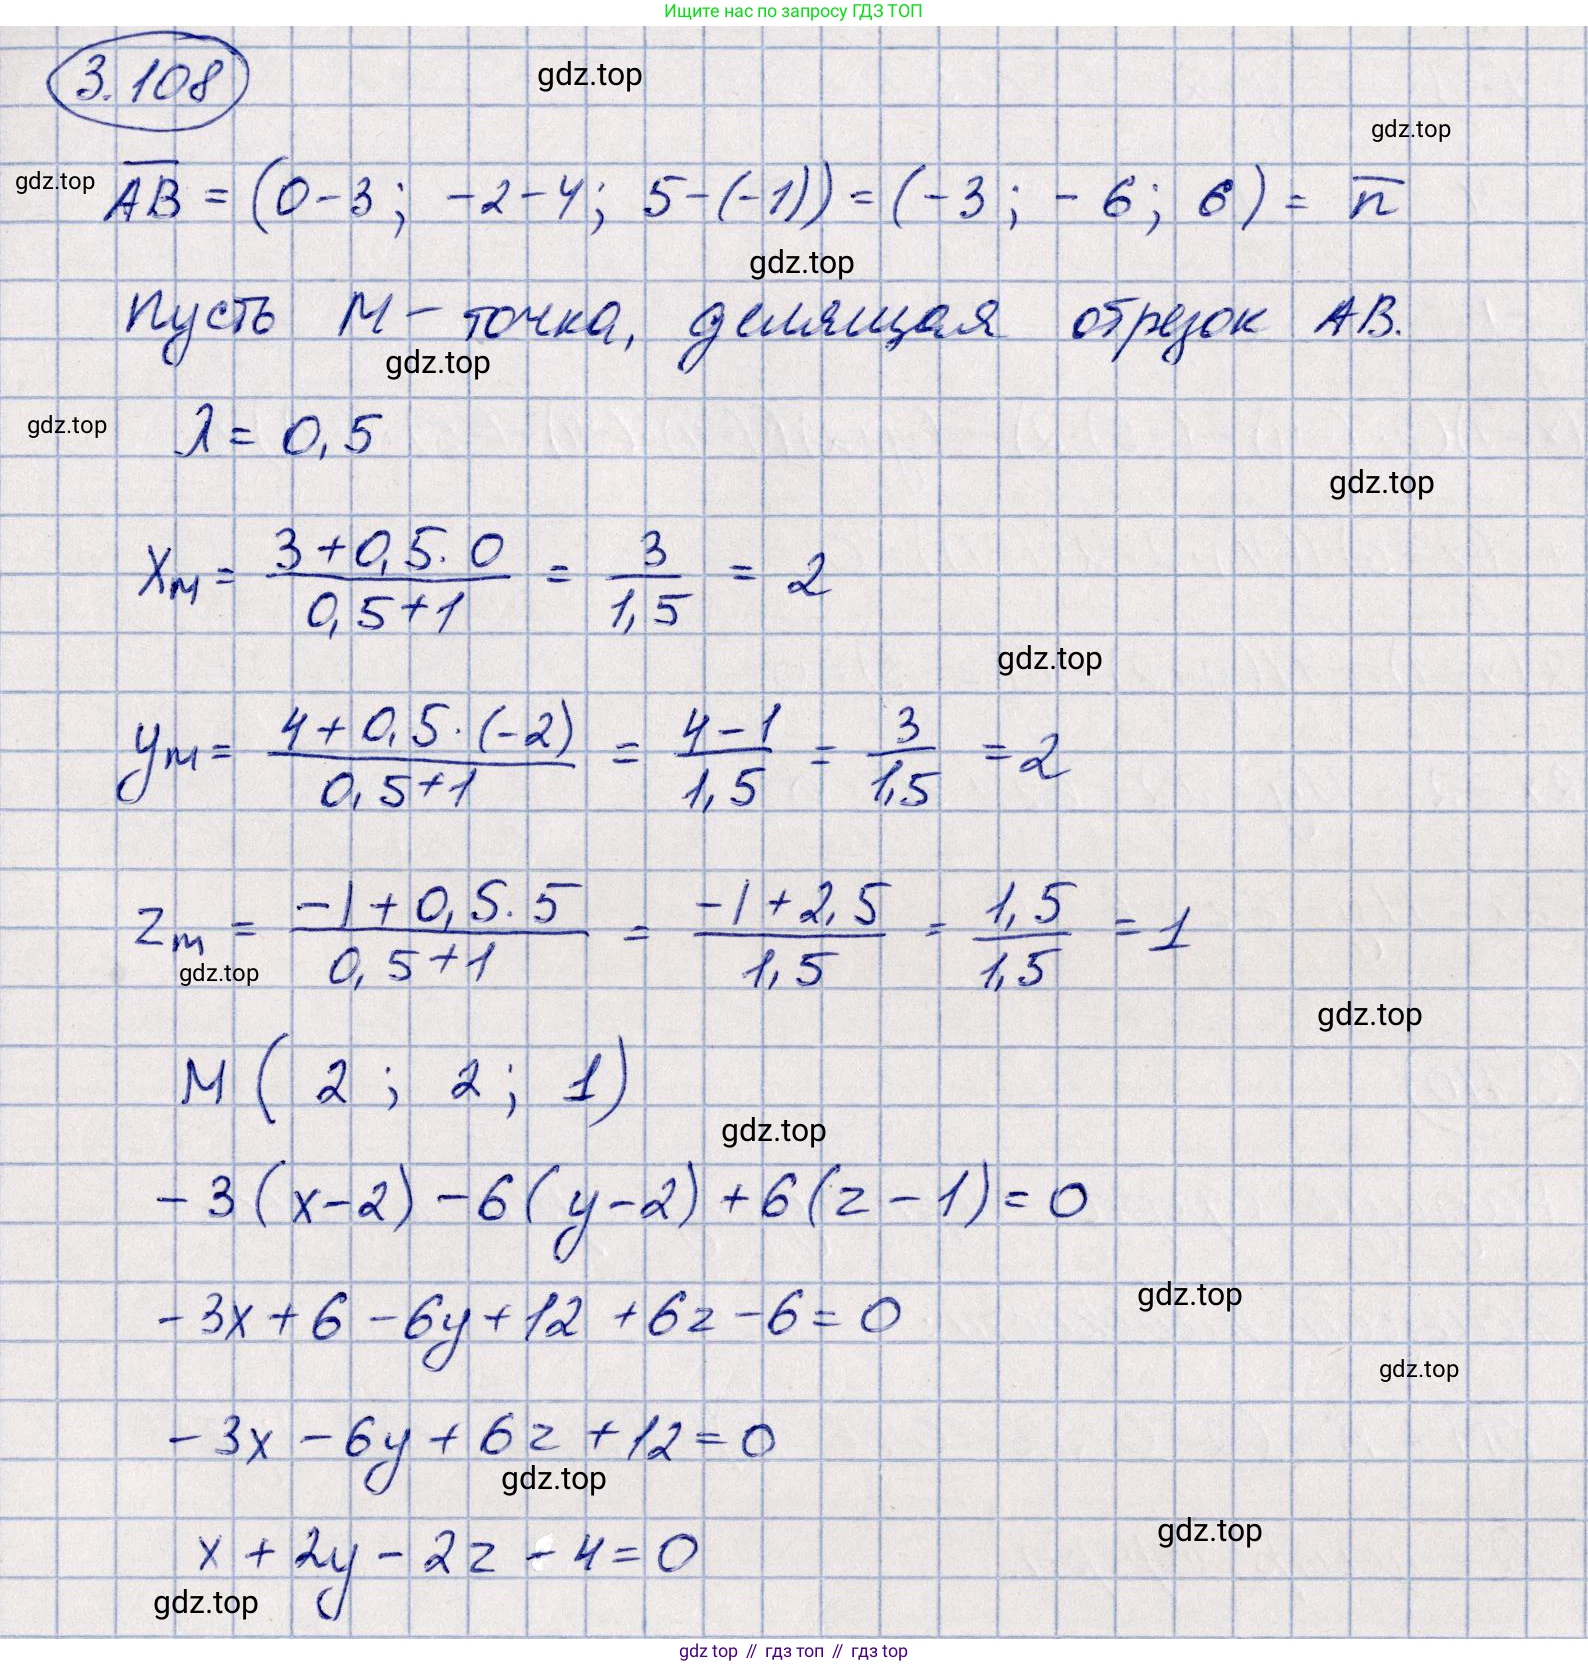 Ищите нас по запросу ГДЗ ТОП
3.108
gdz.top
gdz.top
gdz.top
AB = (0-3; -2-4; 5-(-1)) = (-3; -6; 6) = n
gdz.top
Пусть M - точка, делящая отрезок AB.
gdz.top
gdz.top
λ = 0,5
gdz.top
xM = (3+0,5·0)/(0,5+1) = 3/1,5 = 2
gdz.top
yM = (4+0,5·(-2))/(0,5+1) = (4-1)/1,5 = 3/1,5 = 2
zM = (-1+0,5·5)/(0,5+1) = (-1+2,5)/1,5 = 1,5/1,5 = 1
gdz.top
gdz.top
M(2; 2; 1)
gdz.top
-3(x-2)-6(y-2)+6(z-1)=0
gdz.top
-3x+6-6y+12+6z-6=0
gdz.top
-3x-6y+6z+12=0
gdz.top
gdz.top
x+2y-2z-4=0
gdz.top
gdz top // гдз топ // гдз top